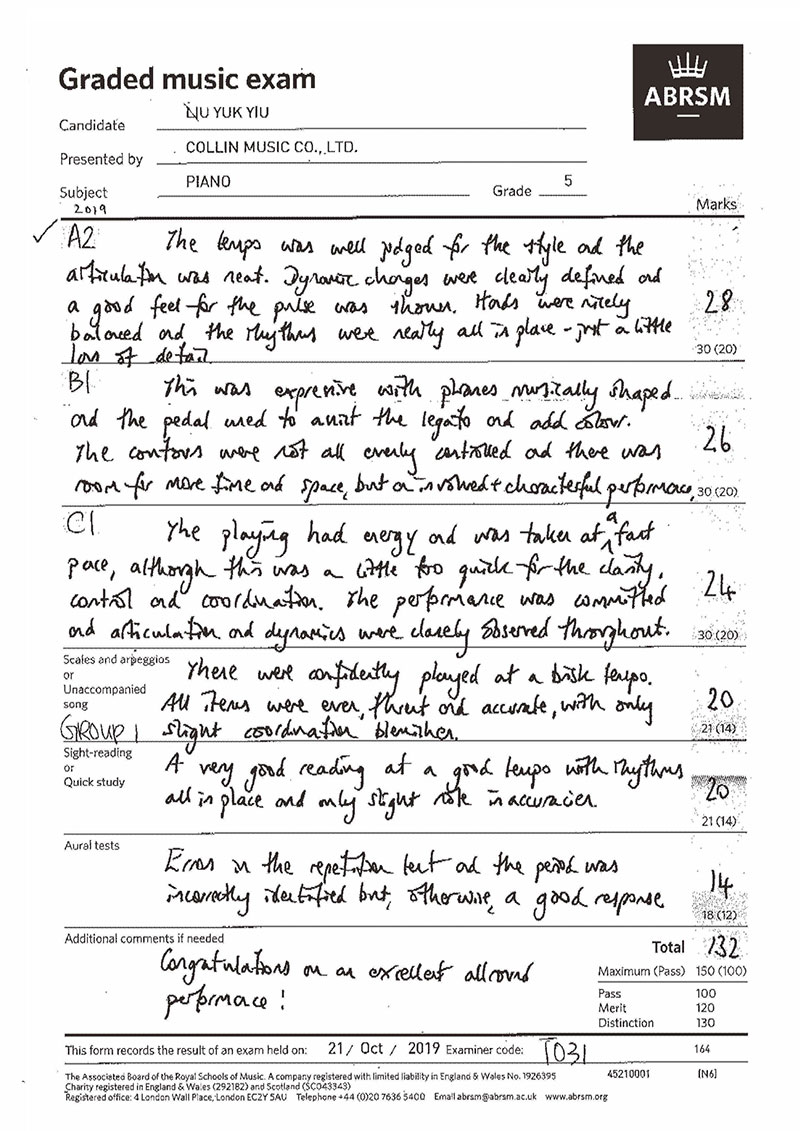 Graded music exam
ABRSM
Candidate LIU YUK YIU
Presented by COLLIN MUSIC CO., LTD.
Subject PIANO Grade 5
2019 Marks
A2 The tempo was well judged for the style and the
articulation was neat. Dynamic changes were clearly defined and
a good feel for the pulse was shown. Hands were nicely
balanced and the rhythms were really all in place - just a little
loss of detail
28
30 (20)
B1 This was expressive with phrases musically shaped
and the pedal used to assist the legato and add colour.
The contours were not all evenly controlled and there was
room for more time and space, but an involved + characterful performance,
26
30 (20)
C1 The playing had energy and was taken at a fast
pace, although this was a little too quick for the clarity,
control and coordination. The performance was committed
and articulation and dynamics were closely observed throughout.
24
30 (20)
Scales and arpeggios
or
Unaccompanied
song
GROUP 1
There were confidently played at a brisk tempo.
All items were even, fluent and accurate, with only
slight coordination blemishes.
20
21 (14)
Sight-reading
or
Quick study
A very good reading at a good tempo with rhythms
all in place and only slight note inaccuracies.
20
21 (14)
Aural tests
Errors in the repetition test and the period was
incorrectly identified but, otherwise, a good response.
14
18 (12)
Additional comments if needed
Congratulations on an excellent allround
performance!
Total 132
Maximum (Pass) 150 (100)
Pass 100
Merit 120
Distinction 130
This form records the result of an exam held on: 21/ Oct / 2019 Examiner code: T031 164
The Associated Board of the Royal Schools of Music. A company registered with limited liability in England & Wales No. 1926395 45210001 [N6]
Charity registered in England & Wales (292182) and Scotland (SC043343)
Registered office: 4 London Wall Place, London EC2Y 5AU Telephone +44 (0)20 7636 5400 Email abrsm@abrsm.ac.uk www.abrsm.org